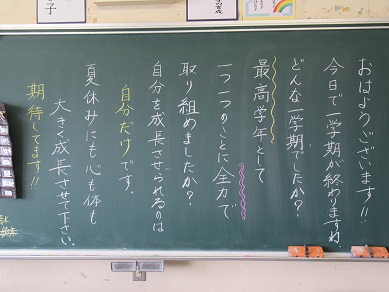 おはようございます!!
今日で一学期が終わりますね
どんな一学期でしたか?
最高学年として
一つ一つのことに全力で
取り組めましたか?
自分を成長させられるのは
自分だけです。
夏休みにも心も体も
大きく成長させて下さい。
期待してます!!